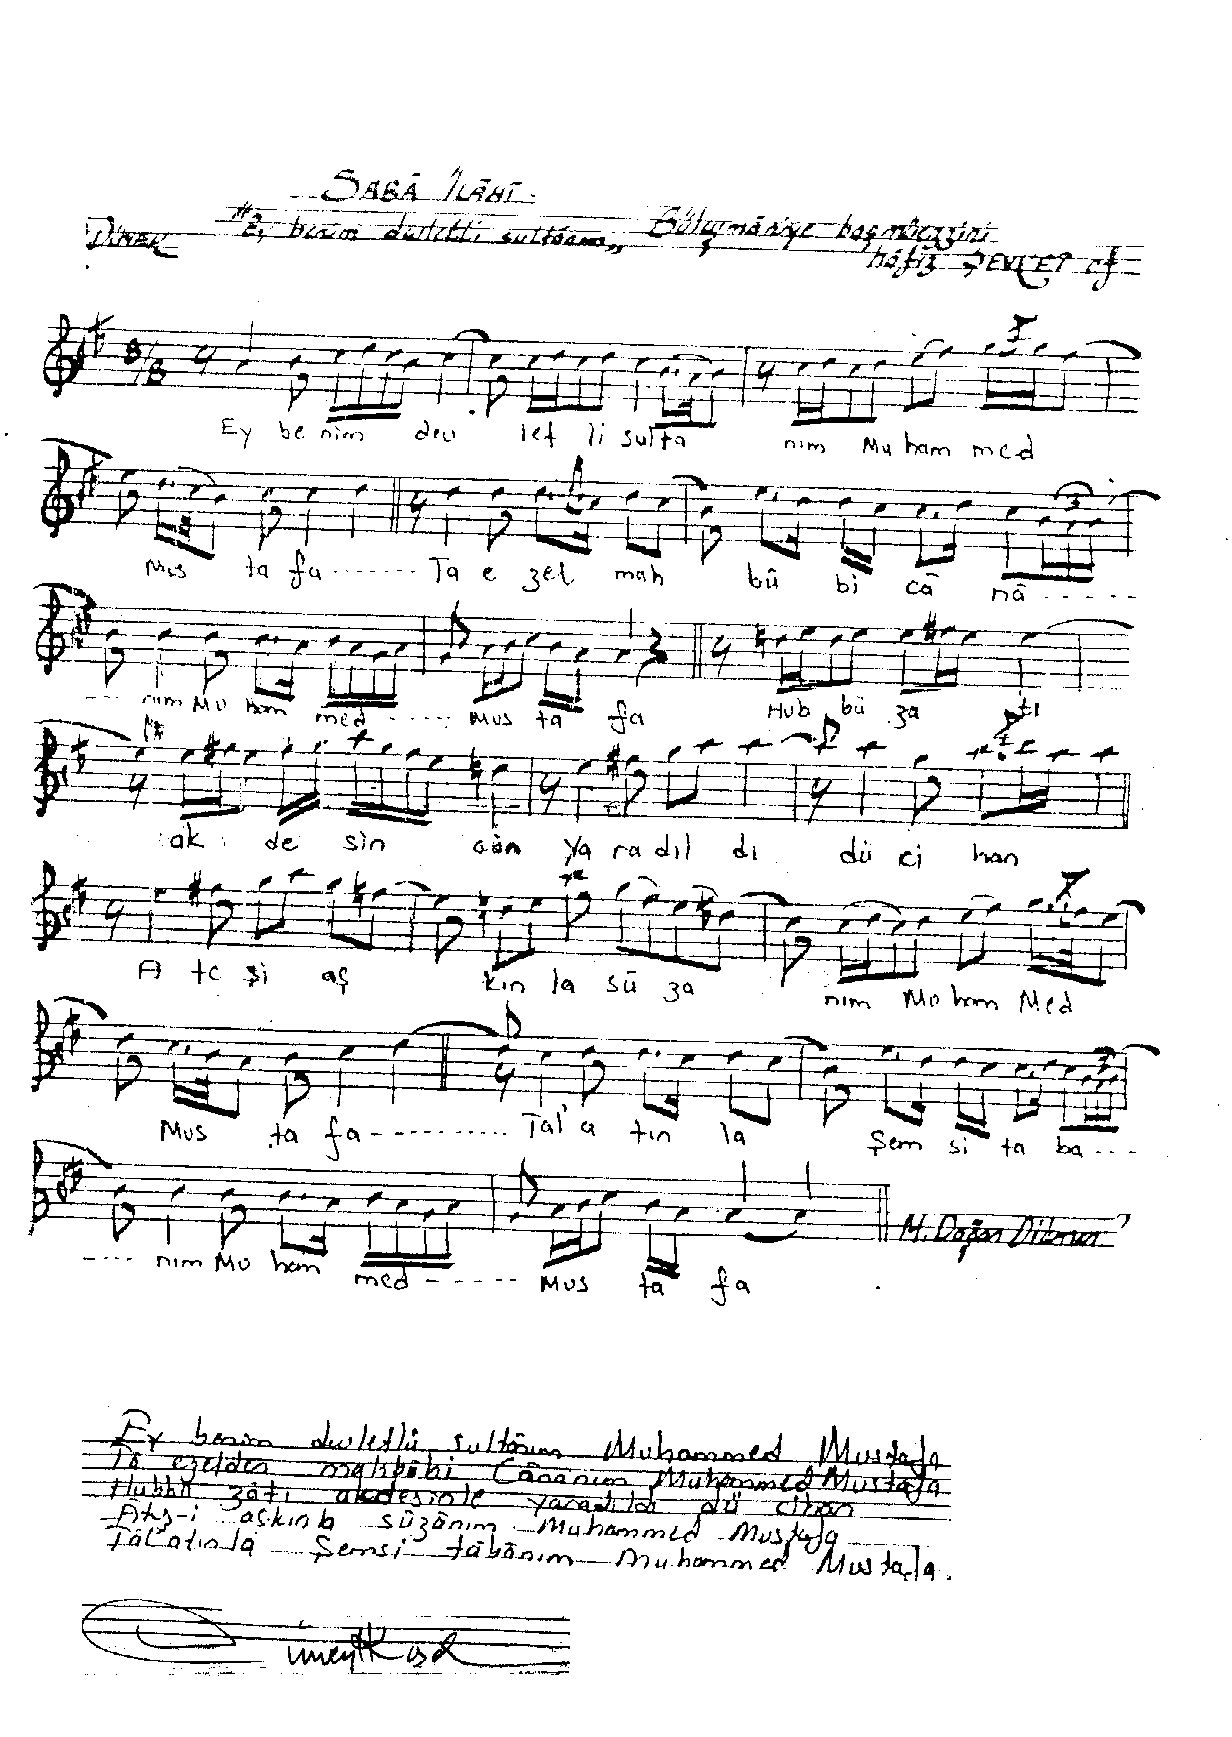 SABÂ İLÂHÎ
"Ey benim devletli sultânım" Süleymâniye başmüezzini
Hâfız ŞEVKET ef
8/8
Ey be nim dev let li sul ta nim Mu ham med
Mus ta fa ------- Ta e zel mah bû bi câ nâ -----
---- nım Mu ham med ----- Mus ta fa Hub bü za tı
ak de sin cün ya ra dıl dı dü ci han
A te şi aş kın la sü za nım Mu ham Med
Mus ta fa ---------- Tal'a tın la Şem si ta ba ---
---- nım Mu ham med ------ Mus ta fa
Ey benim devletlü sultânım Muhammed Mustafa
Tâ ezelden mahbûbi Cânânım Muhammed Mustafa
Hubbü zâtı akdesinle yaradıldı dü cihan
Atş-i aşkınla sûzânım Muhammed Mustafa
Tâl'atınla Şemsi tâbânım Muhammed Mustafa.